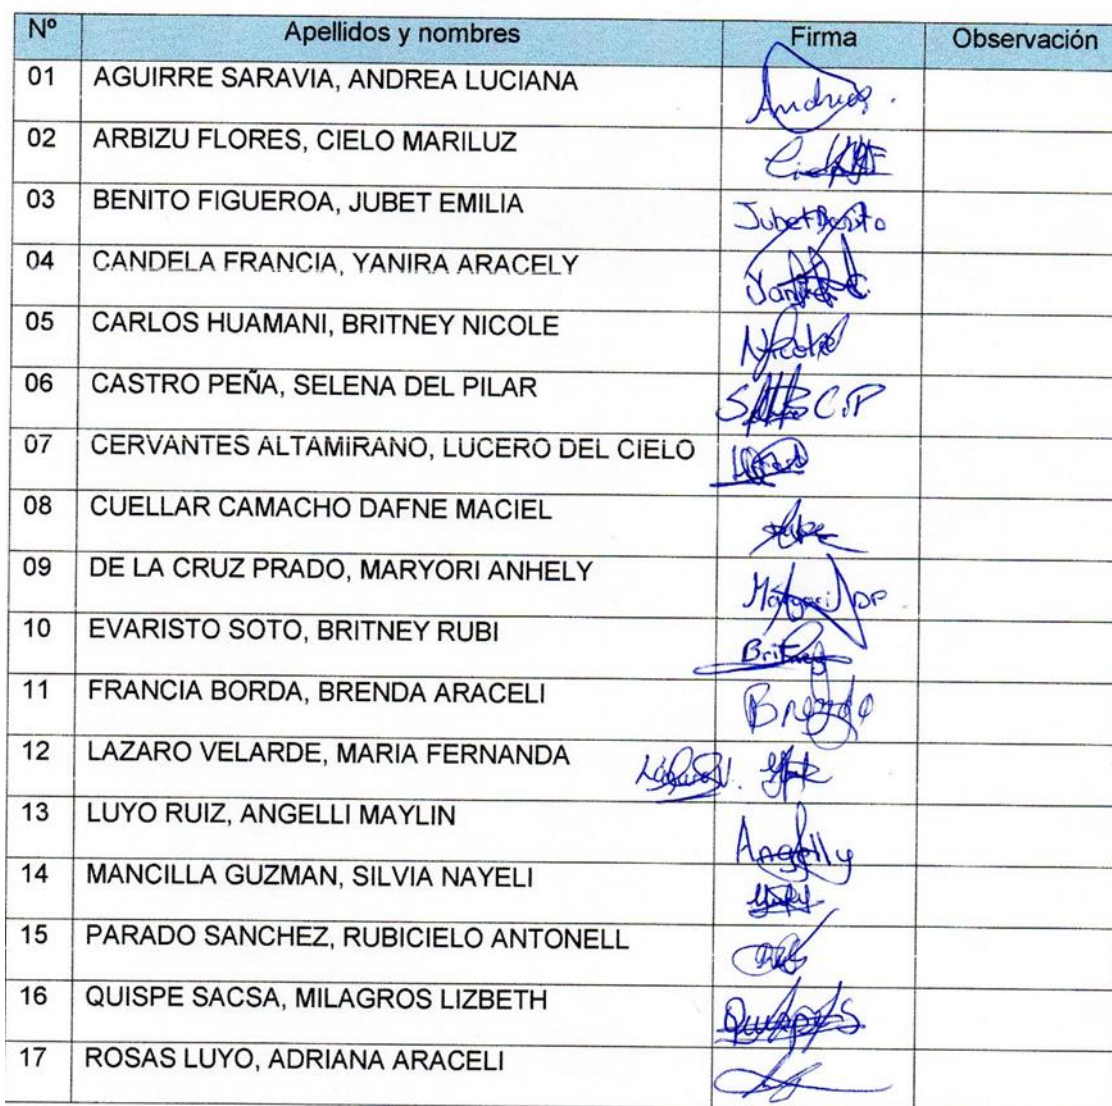 Nº Apellidos y nombres Firma Observación
01 AGUIRRE SARAVIA, ANDREA LUCIANA Andrea
02 ARBIZU FLORES, CIELO MARILUZ
03 BENITO FIGUEROA, JUBET EMILIA Jubet Benito
04 CANDELA FRANCIA, YANIRA ARACELY
05 CARLOS HUAMANI, BRITNEY NICOLE
06 CASTRO PEÑA, SELENA DEL PILAR C.P
07 CERVANTES ALTAMIRANO, LUCERO DEL CIELO
08 CUELLAR CAMACHO DAFNE MACIEL
09 DE LA CRUZ PRADO, MARYORI ANHELY
10 EVARISTO SOTO, BRITNEY RUBI Britney
11 FRANCIA BORDA, BRENDA ARACELI
12 LAZARO VELARDE, MARIA FERNANDA
13 LUYO RUIZ, ANGELLI MAYLIN
14 MANCILLA GUZMAN, SILVIA NAYELI
15 PARADO SANCHEZ, RUBICIELO ANTONELL
16 QUISPE SACSA, MILAGROS LIZBETH
17 ROSAS LUYO, ADRIANA ARACELI